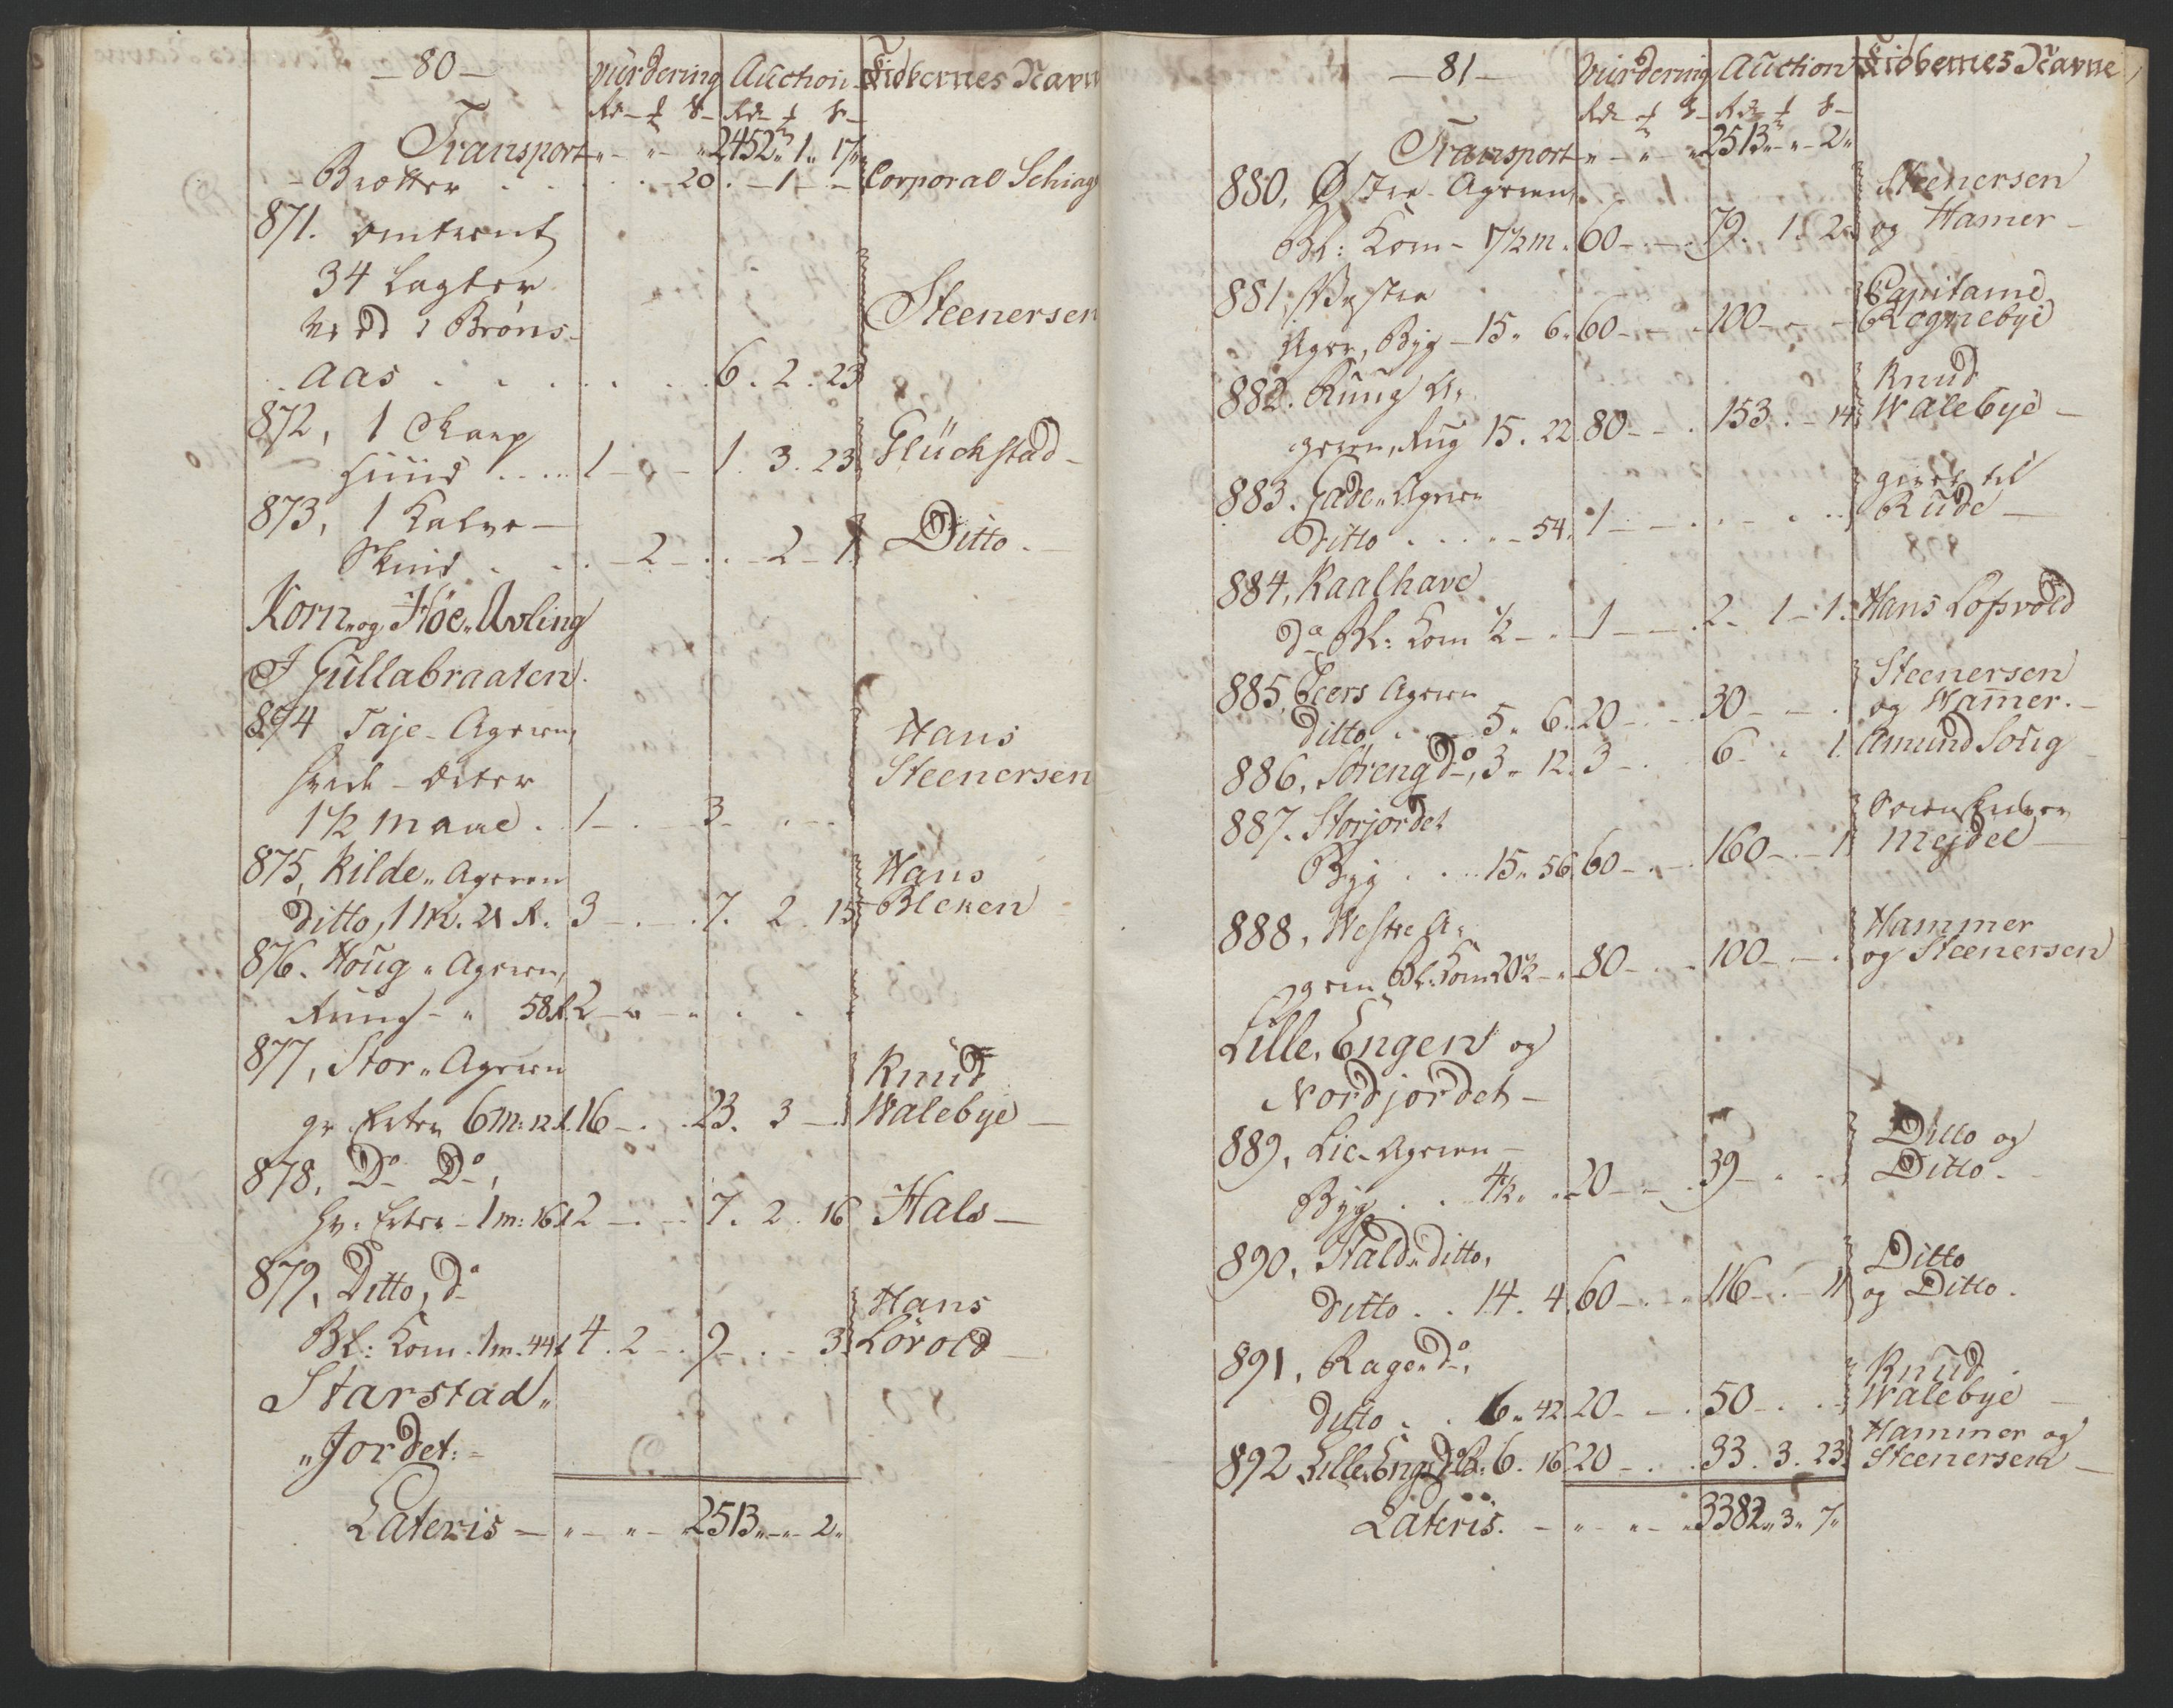 — 80 —
Vurdering Auction Kiøbernes Navne
Rd — S — Rd — S —
Transport „ — „ — „ 2452 „ 1 „ 17 „
— Brætter . . . . . — 20 . — 1 — — Corporal Schiag
871. omtrent
34 Lagter
Vedd i Brøns-
Aas . . . . . . 6 . 2 . 23 Steenersen
872, 1
Huud . . . . 1 — „ — 1 . 3 . 23 Glückstad —
873, 1 Kalve —
Skind . . . — 2 — . . — 2 — 1 Ditto . —
Korn og Høe Avling
I Gullabraaten.
874 Taje - Ageren, Hans
hvide - Erter Steenersen
1 1/2 maal . 1 — . — 3 — . —
875, Kilde „ Ageren Hans
ditto, 1 m. 21 R. 3 — . — 7. 2. 15 Bleken
876. Houg „ Ageren,
Ruug — „ 58 R. 2 — „ — „ . .
877, Stor „ Ageren Knud
gr Erter 6 m: 12 R. 16 — . . 23. 3 — . Walebye —
878, Do Do,
hv: Erter — 1 m: 16 R 2 — . — 7. 2 . 16 Hals —
879, Ditto, do Hans
Bl: Korn . 1 m. 44 R 4 . 2 — . 9 — . — 3 . Lørold
Starstad „
„ Jordet: =
Lateris — „ — „ — „ 2513 „ — „ — 2 „
— 81 —
Vurdering Auction Kiøbernes Navne
Rd — S — Rd — S —
Transport „ — „ — „ 2513 „ — „ — 2 „
880, Østre - Ageren, Steenersen
Bl: Korn - 17 1/2 m. 60 — . — . 79. 1. 2 „ og Hamer —
881, Westre Capitaine
Ager, Byg — 15 „ 6 . 60 — . — . 100 — . — Rognebye
882. Ruug A- Knud
geren, Rug 15. 22. 80 — — . 153 . — 14 Walebye —
883. Gade „ Ageren givet til
ditto . . . . — 54. 1 — — . . — . . Rude —
884, Kaalhave
do Bl: Korn 1/2 — . 1 — — . 2 — 1 — 1. Hans Lofsvold
885, Leers Ageren Steenersen
ditto . . . 5 „ 6 . 20 — . — 30 — . — . og Hammer. —
886, Søreng do, 3 „ 12. 3 — . . 6 — „ 1. Amund Solig
887. Storjordet
Byg . . . 15 „ 56. 60 — . — . 160 — . — 1 Mejdel —
888, Westre A- Hammer
geren Bl: Korn 20 1/2 — „ 80 — . — . 100 — . — . og Steenersen
Lille, Engen og
Nordjordet —
889, Lie - Ageren — Ditto og
Byg . . 4 1/2 „ . 20 — . — . 39 — . — . Ditto. -
890, Hald „ ditto, Ditto
ditto . . 14 . 4 . 60 — . — . 116 — . — 11 og Ditto.
891, Rage „ do, Knud
ditto . . 6 „ 42. 20 — . — . 50 — . . Walebye —
892 Lille Engs do 6. 16. 20 — . . 33. 3. 23. Hammer og Steenersen —
Lateris. — „ — „ — „ 3382 „ 3 „ 7 „